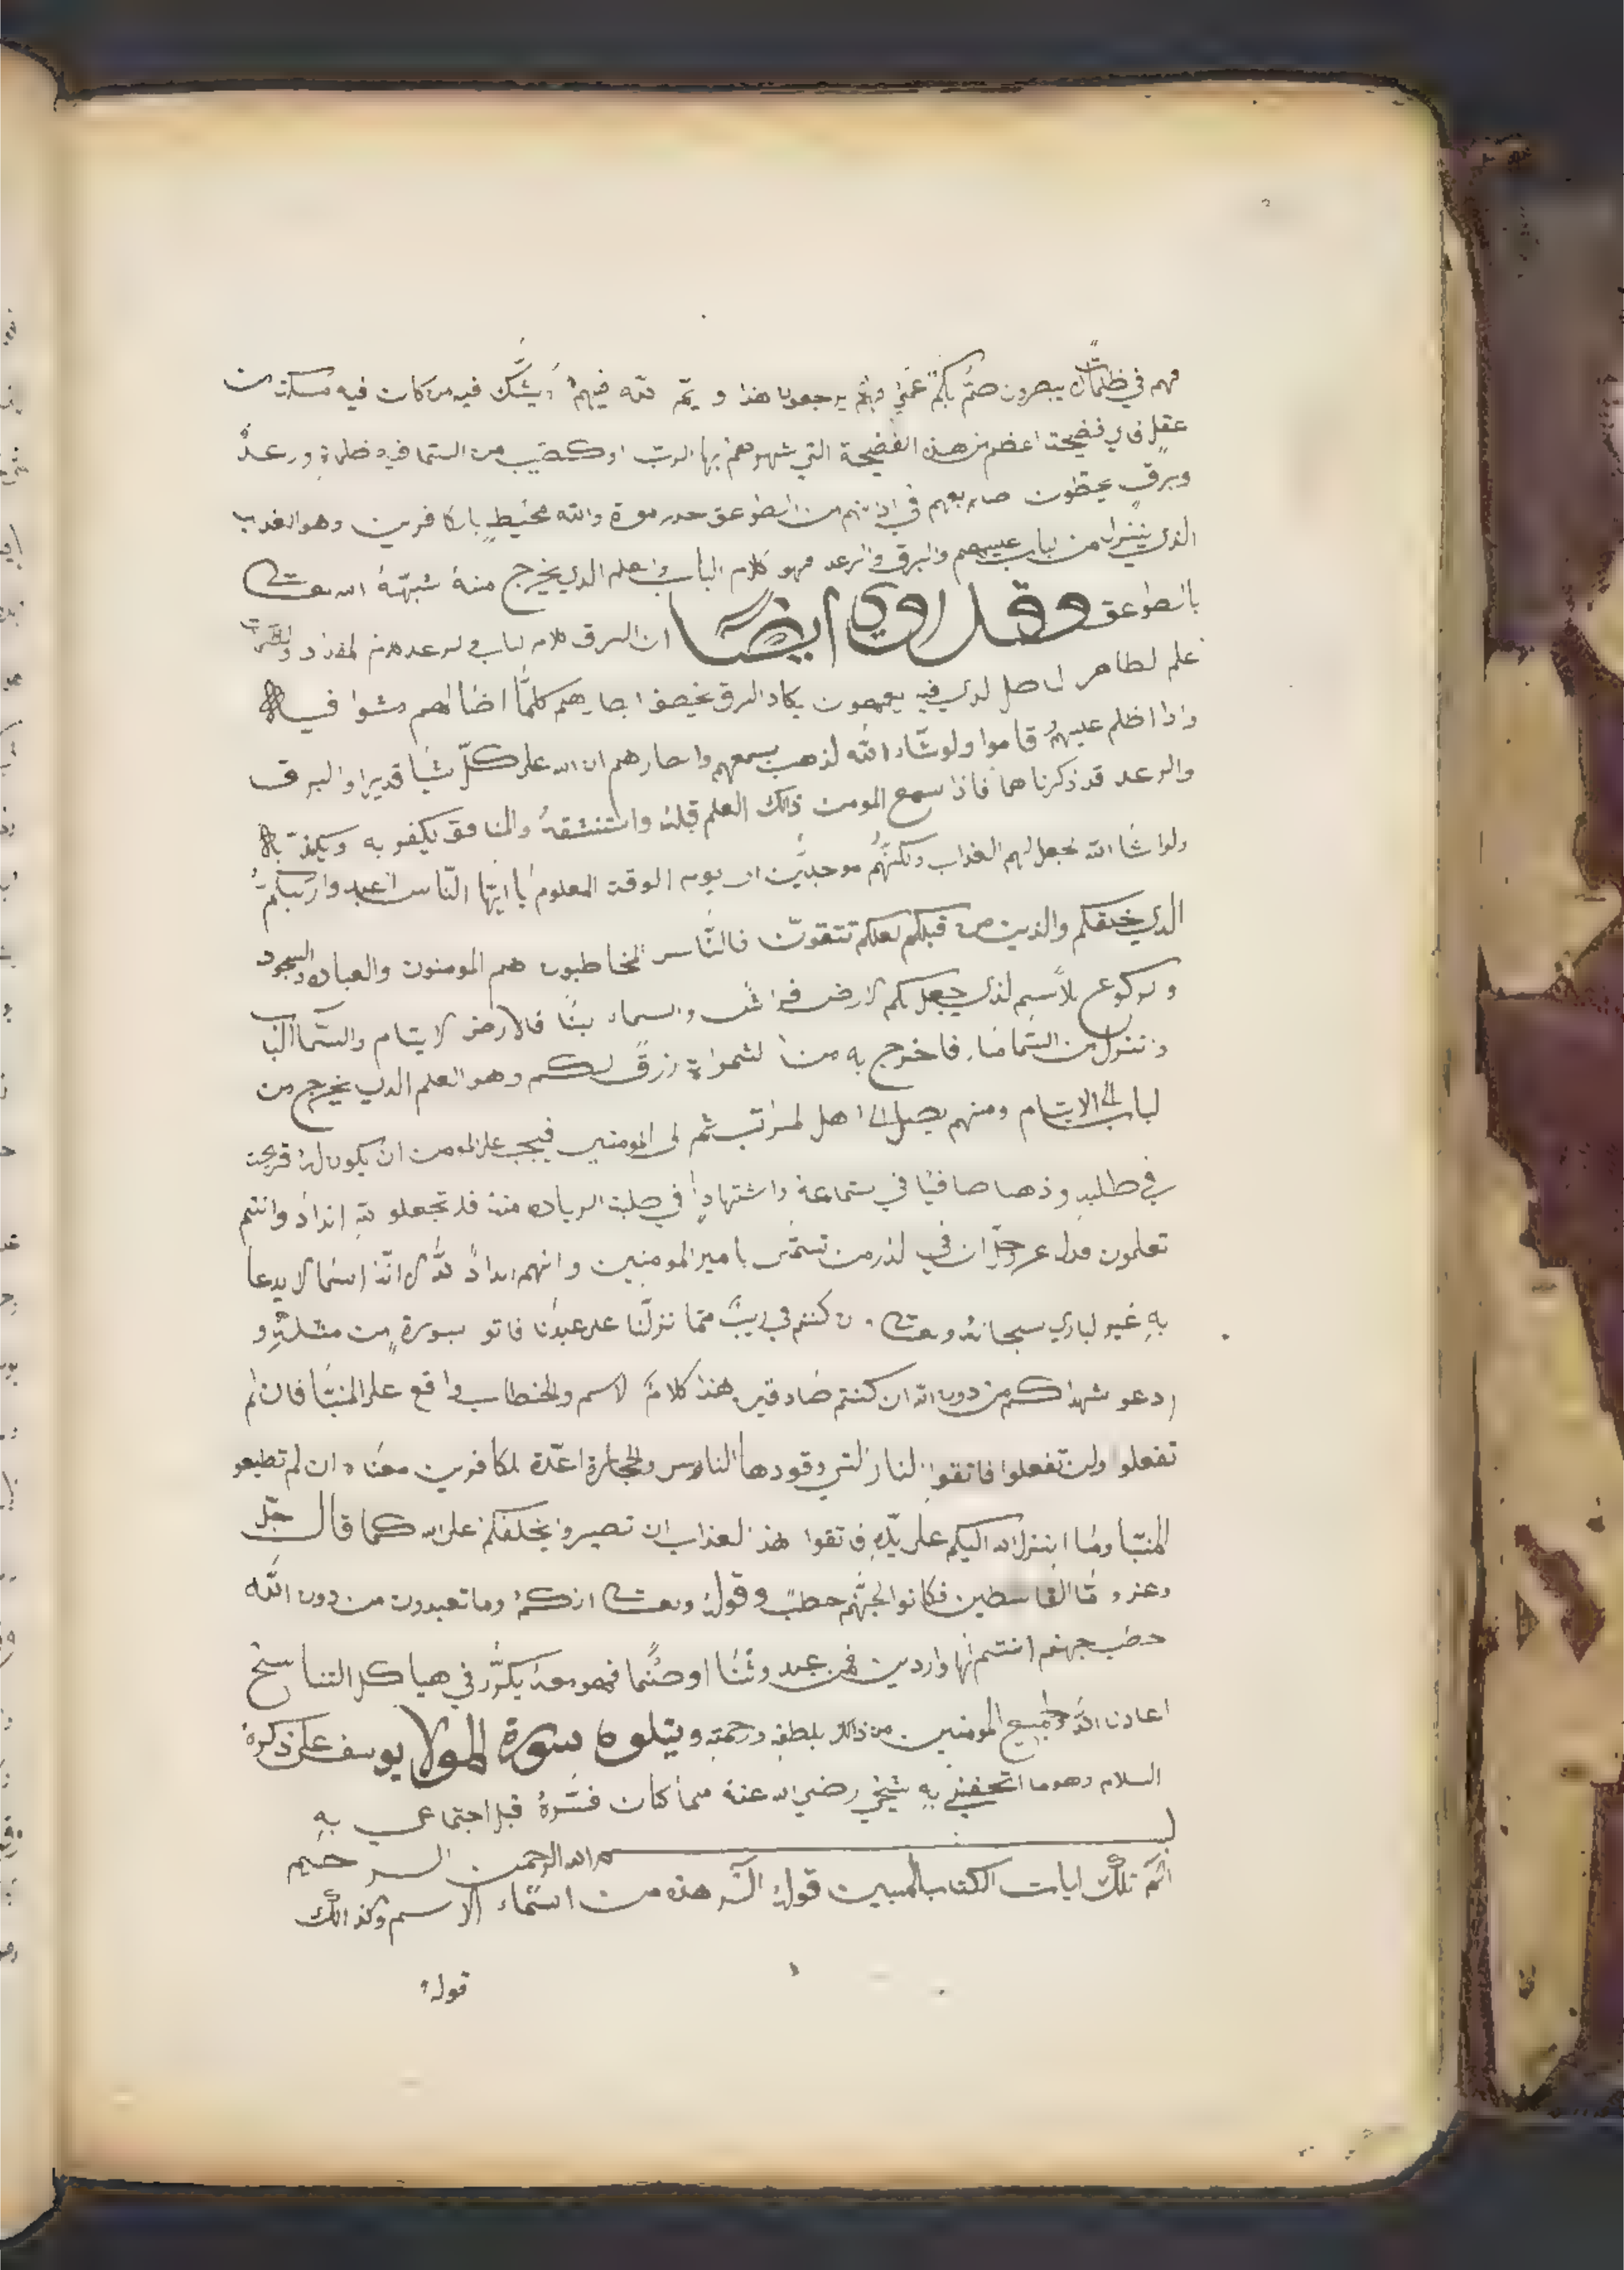 فهم في ظلمات لا يبصرون صمٌ بكمٌ عميٌ فهم لا يرجعون هذا و يمّ الله فيهم لا يشك فيه من كان فيه مسكة من
عقلٍ فاي فضيحة اعظم من هذه الفضيحة التي شهرهم بها الرب او كصيّب من السما فيه ظلماة ورعدٌ
وبرقٍ يجعلون اصابعهم في اذانهم من الصواعق حذر الموة والله محيطٍ بالكافرين وهو العذاب
الذي ينزل من الباب عليهم والبرق والرعد فهو كلام الباب والعلم الذي يخرج منهُ شبّههُ الله تعالى
بالصواعق وقد روي ايضًا ان البرق كلام الباب والرعد
علم الظاهر الذي فيه يعمهون يكاد البرق يخطف ابصارهم كلما اضا لهم مشوا فيه
واذا اظلم عليهم قاموا ولو شاء الله لذهب بسمعهم وابصارهم ان الله على كلّ شيا قديرا والبرق
والرعد قد ذكرناهما فاذا سمع المومن ذالك العلم قبلهُ واستنشقهُ والمنافق يكفر به ويكذّب به
ولو شا الله لعجل لهم العذاب ولكنهُم موجلين الى يوم الوقت المعلوم يا ايّها النّاس اعبدوا ربّكم
الذي خلقكم والذين من قبلكم لعلكم تتقون فالنّاس المخاطبون هم المومنون والعباده السجود
والركوع للاسم الذي جعل لكم الارض فراشًا والسماء بنًا فالارض الايتام والسّما الباب
وانزل من السّما ماء فاخرج به من الثمراة رزقً لكم وهو العلم الذي يخرج من
الباب الى الايتام ومنهم يصل الى اهل المراتب ثم الى المومنين فيجب على المومن ان يكون لهُ قريحت
في طلبهِ وذهنا صافيًا في ستماعه واشتهادًا في طلبة الزياده منه فلا تجعلو للهِ اندادً وانتم
تعلمون فدل عز وجلّ ان في الذر من تسمّى بامير المومنين وانهم اندادً للهِ لانّه اسمًا لا يدعا
بهِ غير الباري سبحانهُ وتعالى وان كنتم في ريبٍ مما نزلّنا على عبدنا فاتو بسورةٍ من مثلهِ و
ادعو شهداكم من دون الله ان كنتم صادقين هذا كلامُ الاسم والخطاب واقع على المنبّا فان لم
تفعلوا ولن تفعلوا فاتقوا النار التي وقودها الناس والحجارة اعدّة للكافرين معناه ان لم تطيعو
المنبّا وما انزل الله اليكم على يدّهِ فاتقوا هذا العذاب ان تصيروا بخلفكم على الله كما قال جلّ
وعز وامّا القاسطين فكانوا لجهنّم حطبً وقولهُ وتعالى انكمُ وما تعبدون من دون الله
حطب جهنم انتم لها واردين فمن عبد وثنًا او صنًما فهو معهُ يكرّر في هياكل التناسخ
اعاذنا اللهُ وجميع المومنين من ذالك بلطفهِ ورحمتهِ ويتلوه سورة المولا يوسف على ذكرهُ
السلام وهو ما اتحفني بهِ شيخي رضي الله عنهُ مما كان فسّرهُ قبل اجتماعي بهِ
بسم الله الرحمن الرحيم
الر تلك ايات الكتاب المبين قولهُ الر هذه من اسّماء الاسم وكذالك
قولهُ